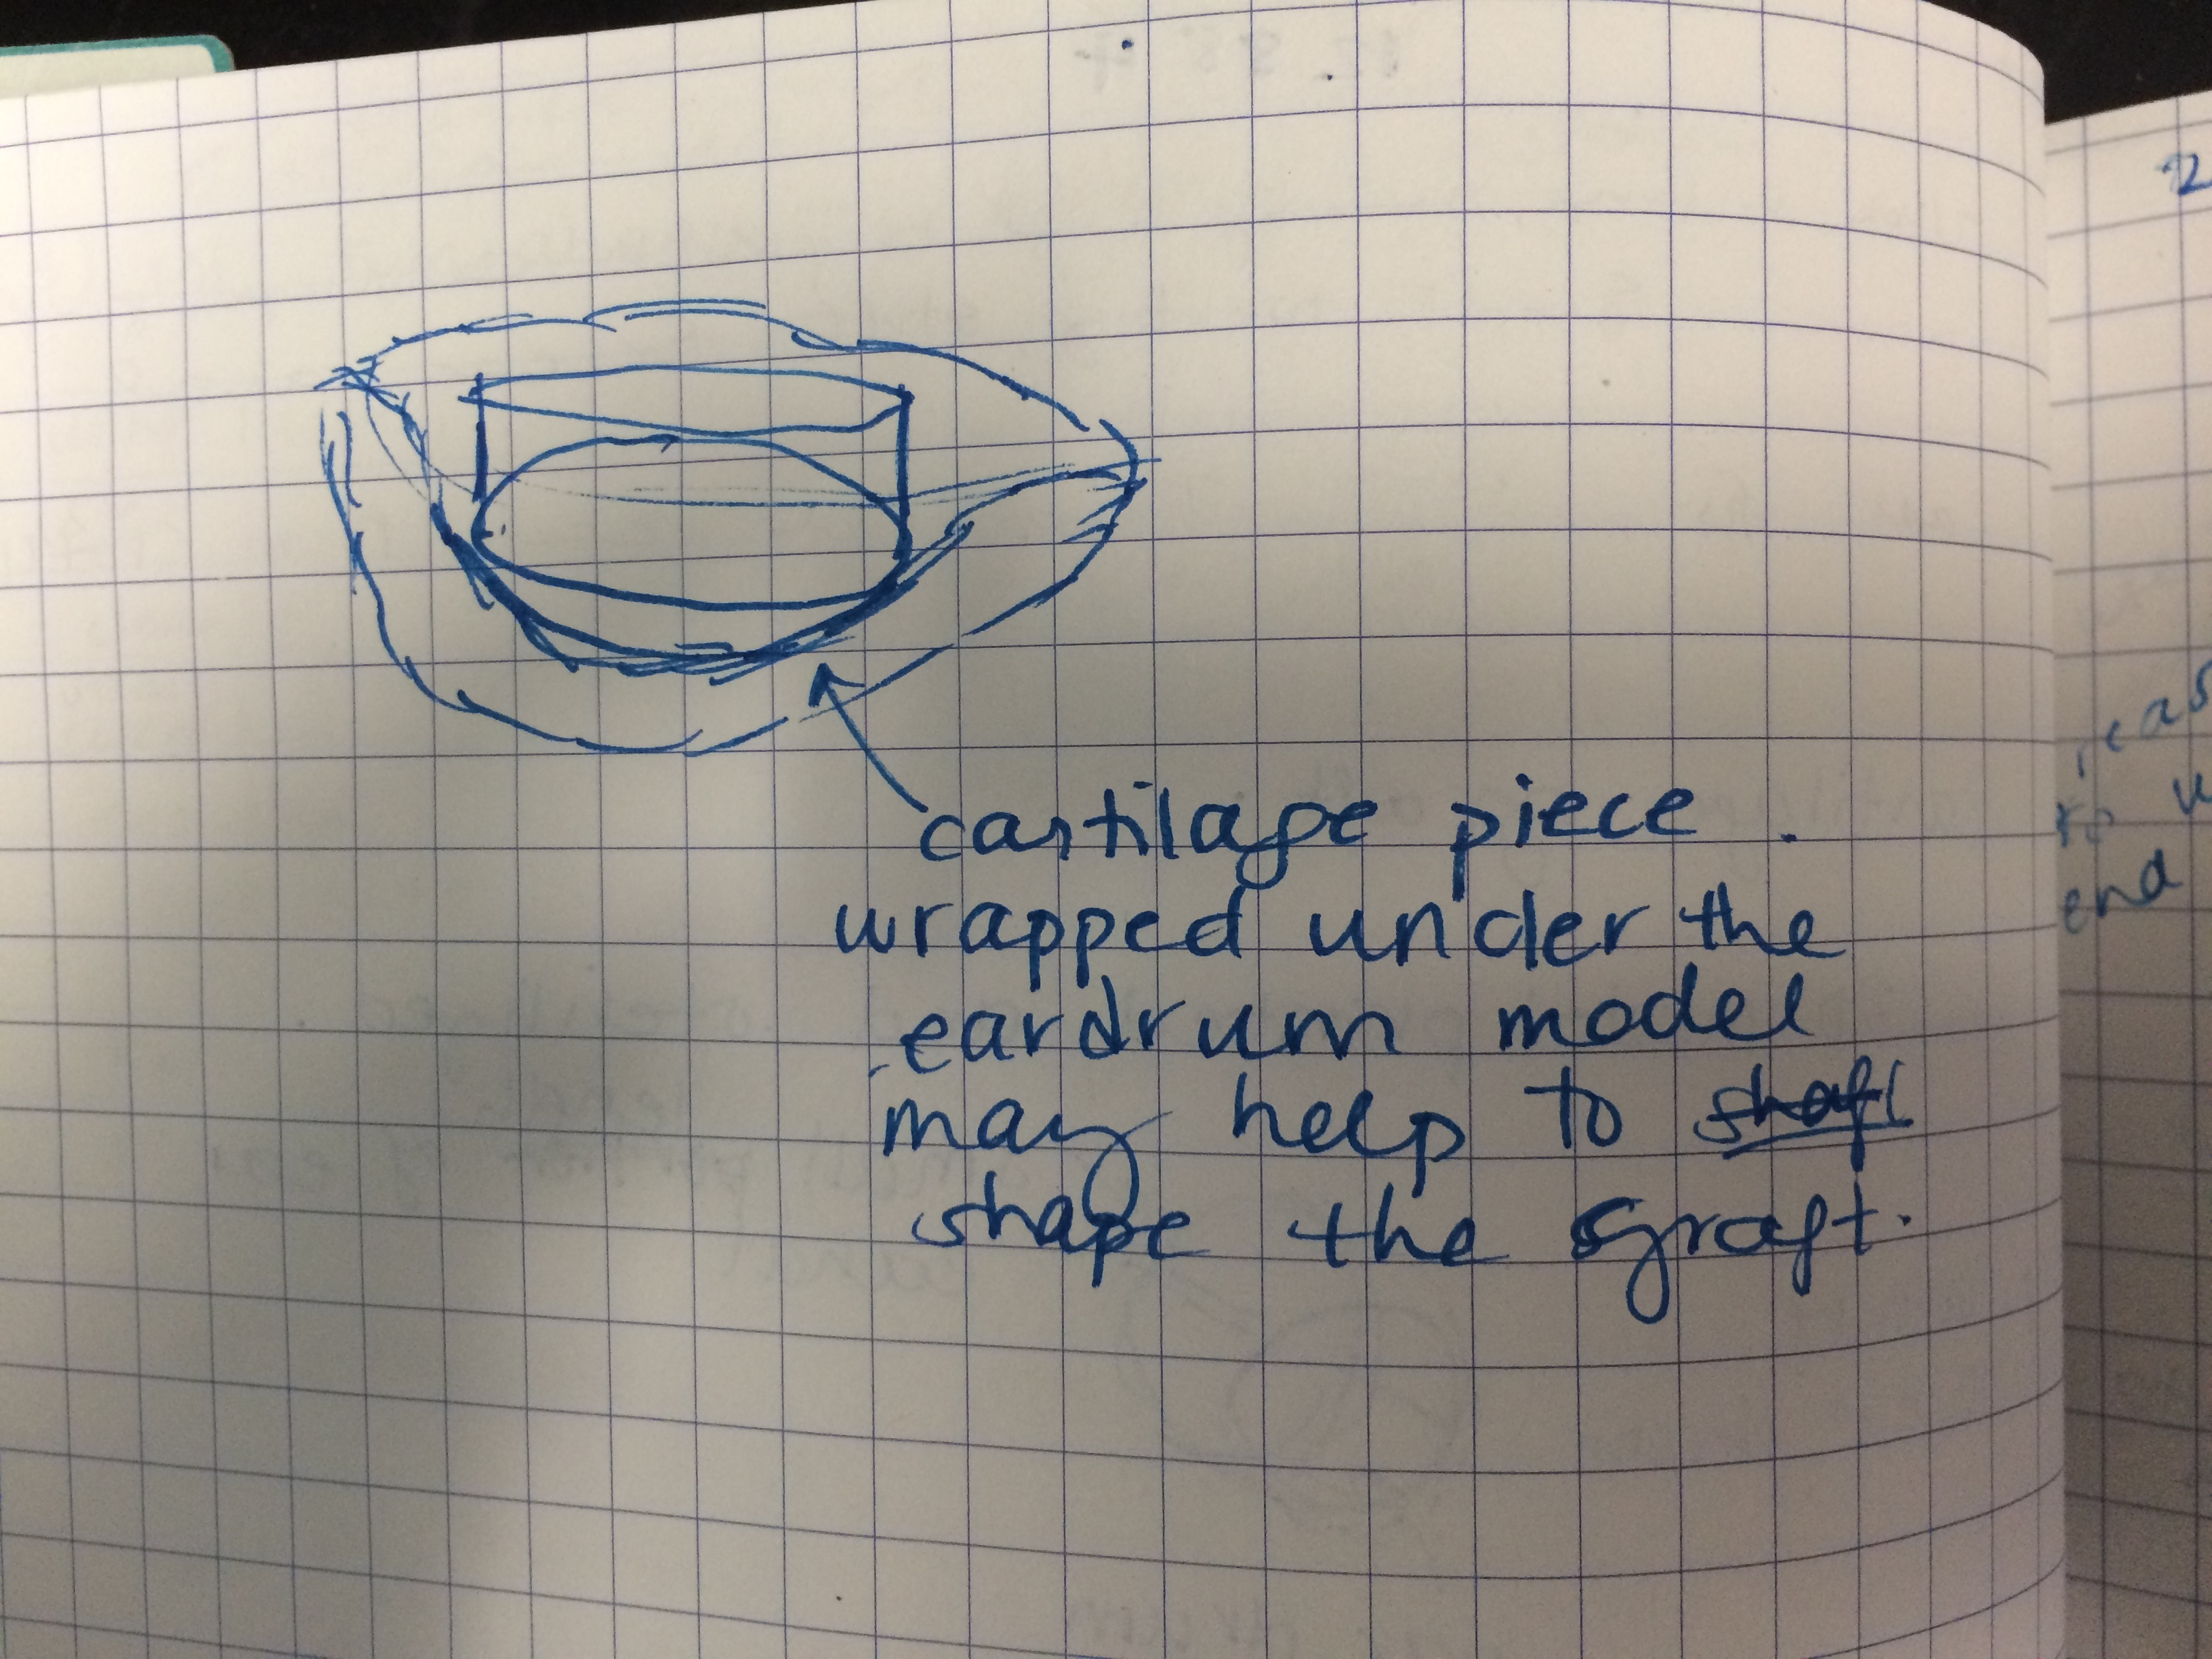 cartilage piece
wrapped under the
eardrum model
may help to shaft
shape the graft.
end
2